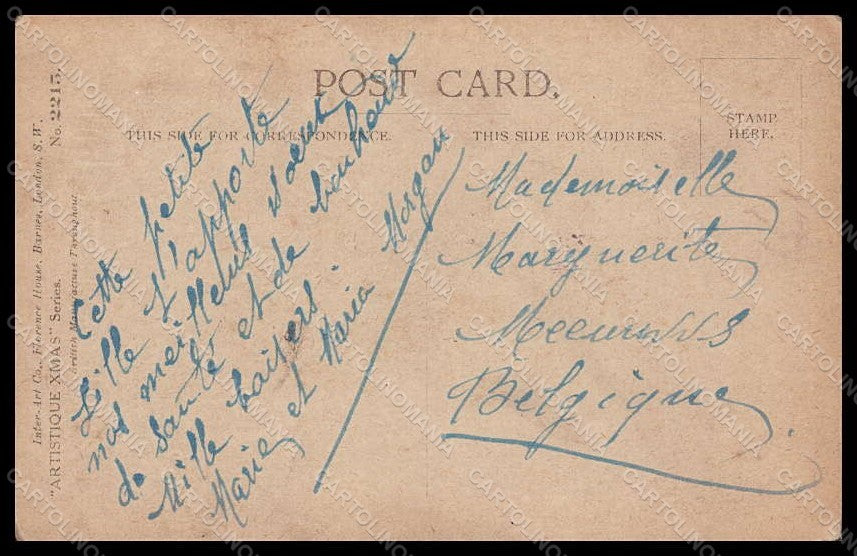 POST CARD.
THIS SIDE FOR CORRESPONDENCE.
THIS SIDE FOR ADDRESS.
STAMP
HERE.
Inter-Art Co., Florence House, Barnes, London, S.W.
"ARTISTIQUE XMAS" Series.
No. 2215.
British Manufacture Throughout
Cette petite
fille t'apporte
nos meilleurs
de santé et de bonheur
Mille baisers.
Marie et Maria Morgan
Mademoiselle
Marguerite
Belgique.
CARTOLINOMANIA